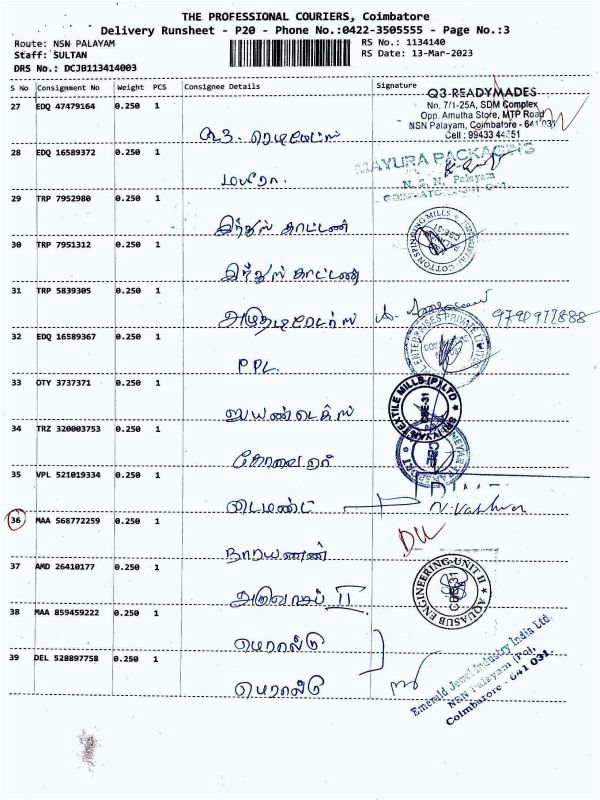 THE PROFESSIONAL COURIERS, Coimbatore
Delivery Runsheet - P20 - Phone No.:0422-3505555 - Page No.:3
Route: NSN PALAYAM
RS No.: 1134140
Staff: SULTAN
RS Date: 13-Mar-2023
DRS No.: DCJB113414003
S No Consignment No Weight PCS Consignee Details Signature
27 EDQ 47479164 0.250 1
Q3 READYMADES
No. 7/1-25A, SDM Complex
Opp. Amutha Store, MTP Road
NSN Palayam, Coimbatore - 641 031
கூ3. ரெடிமேட்ஸ்
28 EDQ 16589372 0.250 1
MAYURA PACKAGINGS
N. S. N. Palayam
மயூரா.
29 TRP 7952980 0.250 1
இந்துஸ் காட்டன்
30 TRP 7951312 0.250 1
இந்துஸ் காட்டன்
31 TRP 5839305 0.250 1
32 EDQ 16589367 0.250 1
ENTERPRISES PRIVATE LIMITED
PPL.
33 OTY 3737371 0.250 1
TEXTILE MILLS (P) LTD
CBE-31
34 TRZ 320003753 0.250 1
CBE
கோவை ஏர்
35 VPL 521019334 0.250 1
டைமண்ட்
36 MAA 568772259 0.250 1
DL
நாராயணன்
37 AMD 26410177 0.250 1
AQUASUB ENGINEERING-UNIT II
CBE-31
அக்வாசப் II
38 MAA 859459222 0.250 1
எமரால்டு
39 DEL 528897758 0.250 1
எமரால்டு
Emerald Jewel Industry India Ltd
NSN Palayam (Po),
Coimbatore - 641 031.